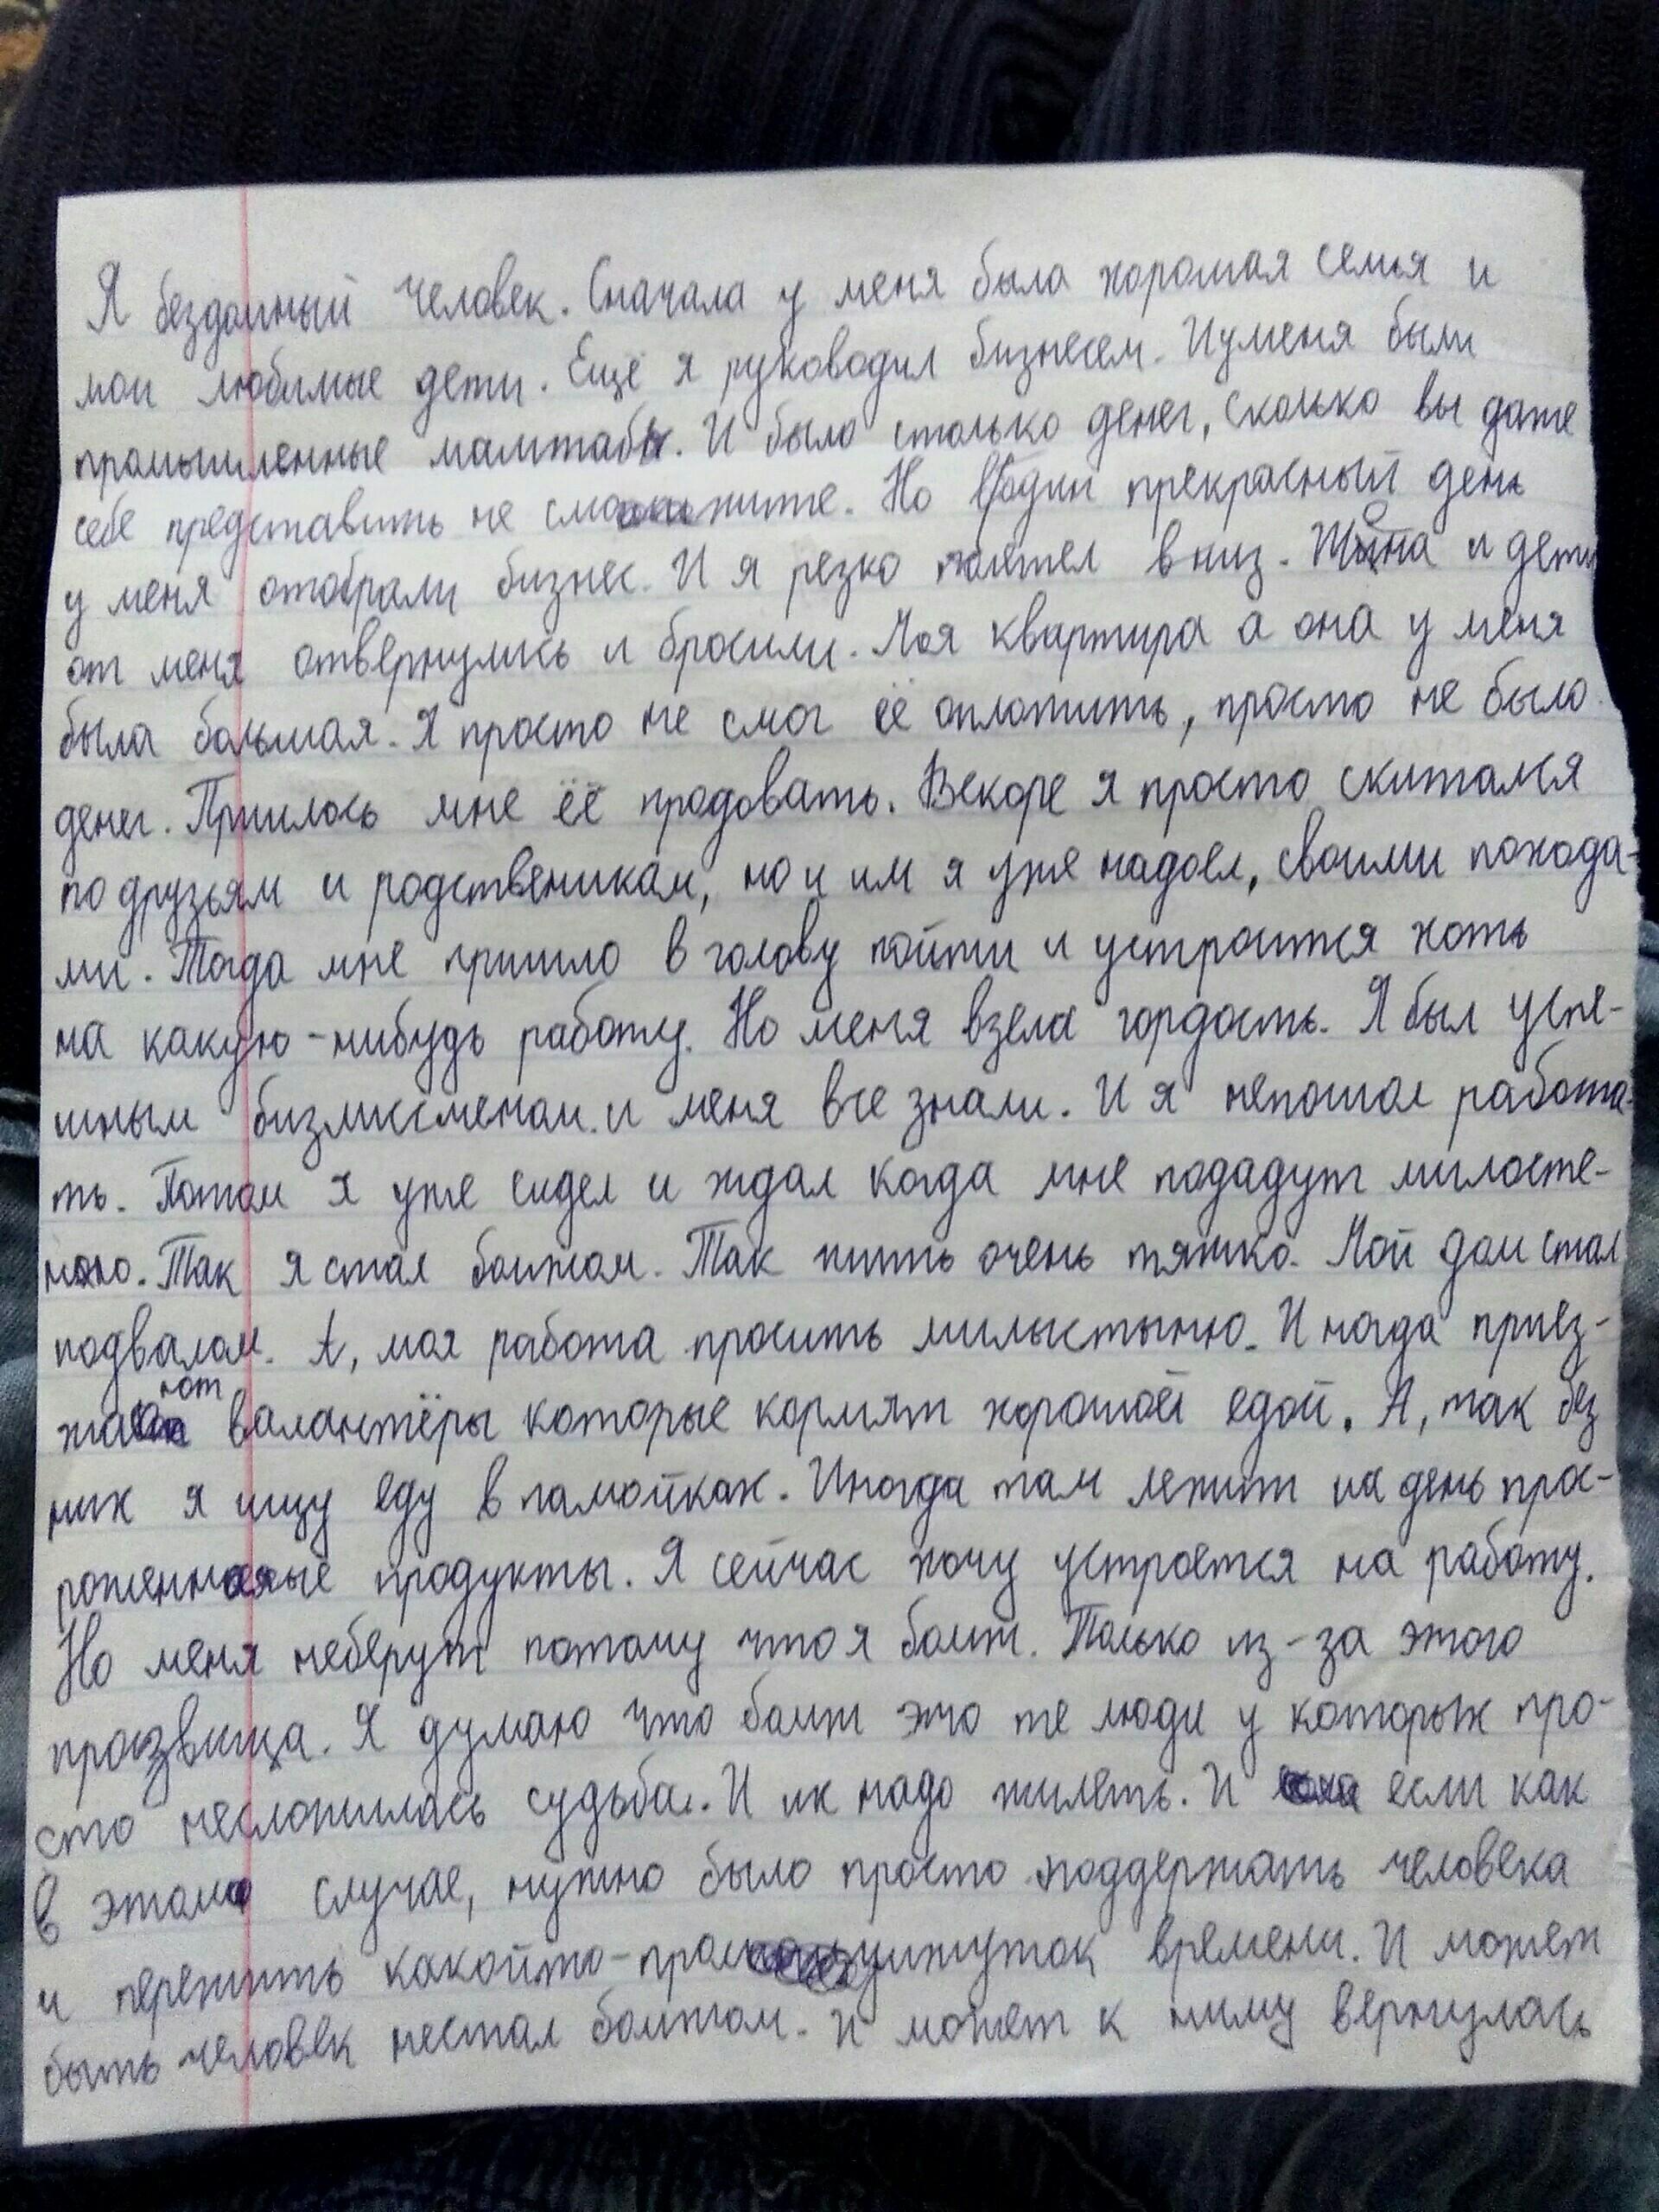 Я бездомный человек. Сначала у меня была хорошая семья и
мои любимые дети. Ещё я руководил бизнесем. И у меня были
промышленные масштабы. И было столько денег, сколько вы даже
себе представить не сможите. Но в один прекрасный день
у меня отобрали бизнес. И я резко полетел в низ. Жона и дети
от меня отвернулись и бросили. Моя квартира а она у меня
была большая. Я просто не смог её оплотить, просто не было
денег. Пришлось мне её продовать. Вскоре я просто скитался
по друзьям и родственикам, но и им я уже надоел, своими похода-
ми. Тогда мне пришло в голову пойти и устроится хоть
на какую-нибудь работу. Но меня взела гордость. Я был успе-
шным бизмисменом и меня все знали. И я непошол работа-
ть. Потом я уже сидел и ждал когда мне подадут милосте-
ною. Так я стал бомжом. Так жить очень тяжко. Мой дом стал
подвалом. А, моя работа просить милыстыню. Иногда приез-
жают валантёры которые кормят хорошей едой. А, так без
них я ищу еду в помойках. Иногда там лежит на день про-
роженные продукты. Я сейчас хочу устроется на работу.
Но меня неберут потому что я бомж. Только из-за этого
прозвища. Я думаю что бомж это те люди у которых про-
сто несложилась судьба. И их надо жилеть. И если как
в этом случае, нужно было просто поддержать человека
и пережить какойто-промижуток времени. И может
быть человек нестал бомжом. И может к нему вернулась